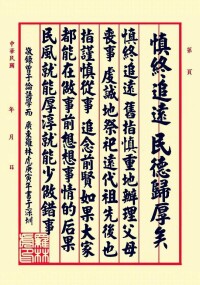 第 頁
慎終追遠 民德歸厚矣
慎終追遠 舊指慎重地辦理父母
喪事 虔誠地祭祀遠代祖先後也
指謹慎從事 追念前賢如果大家
都能在做事前想想事情的后果
民風就能厚淳就能少做錯事
敬錄曾子論語學而 廣東羅林虎庚寅年書于深圳
中華民國 年 月 日